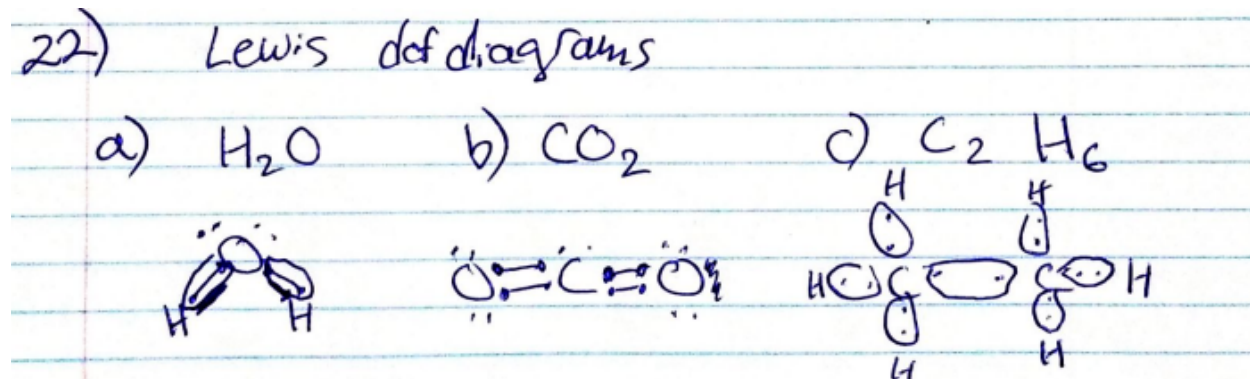 22) Lewis dot diagrams
a) H₂O b) CO₂ c) C₂ H₆
H H
O O = C = O H C C H
H H H H